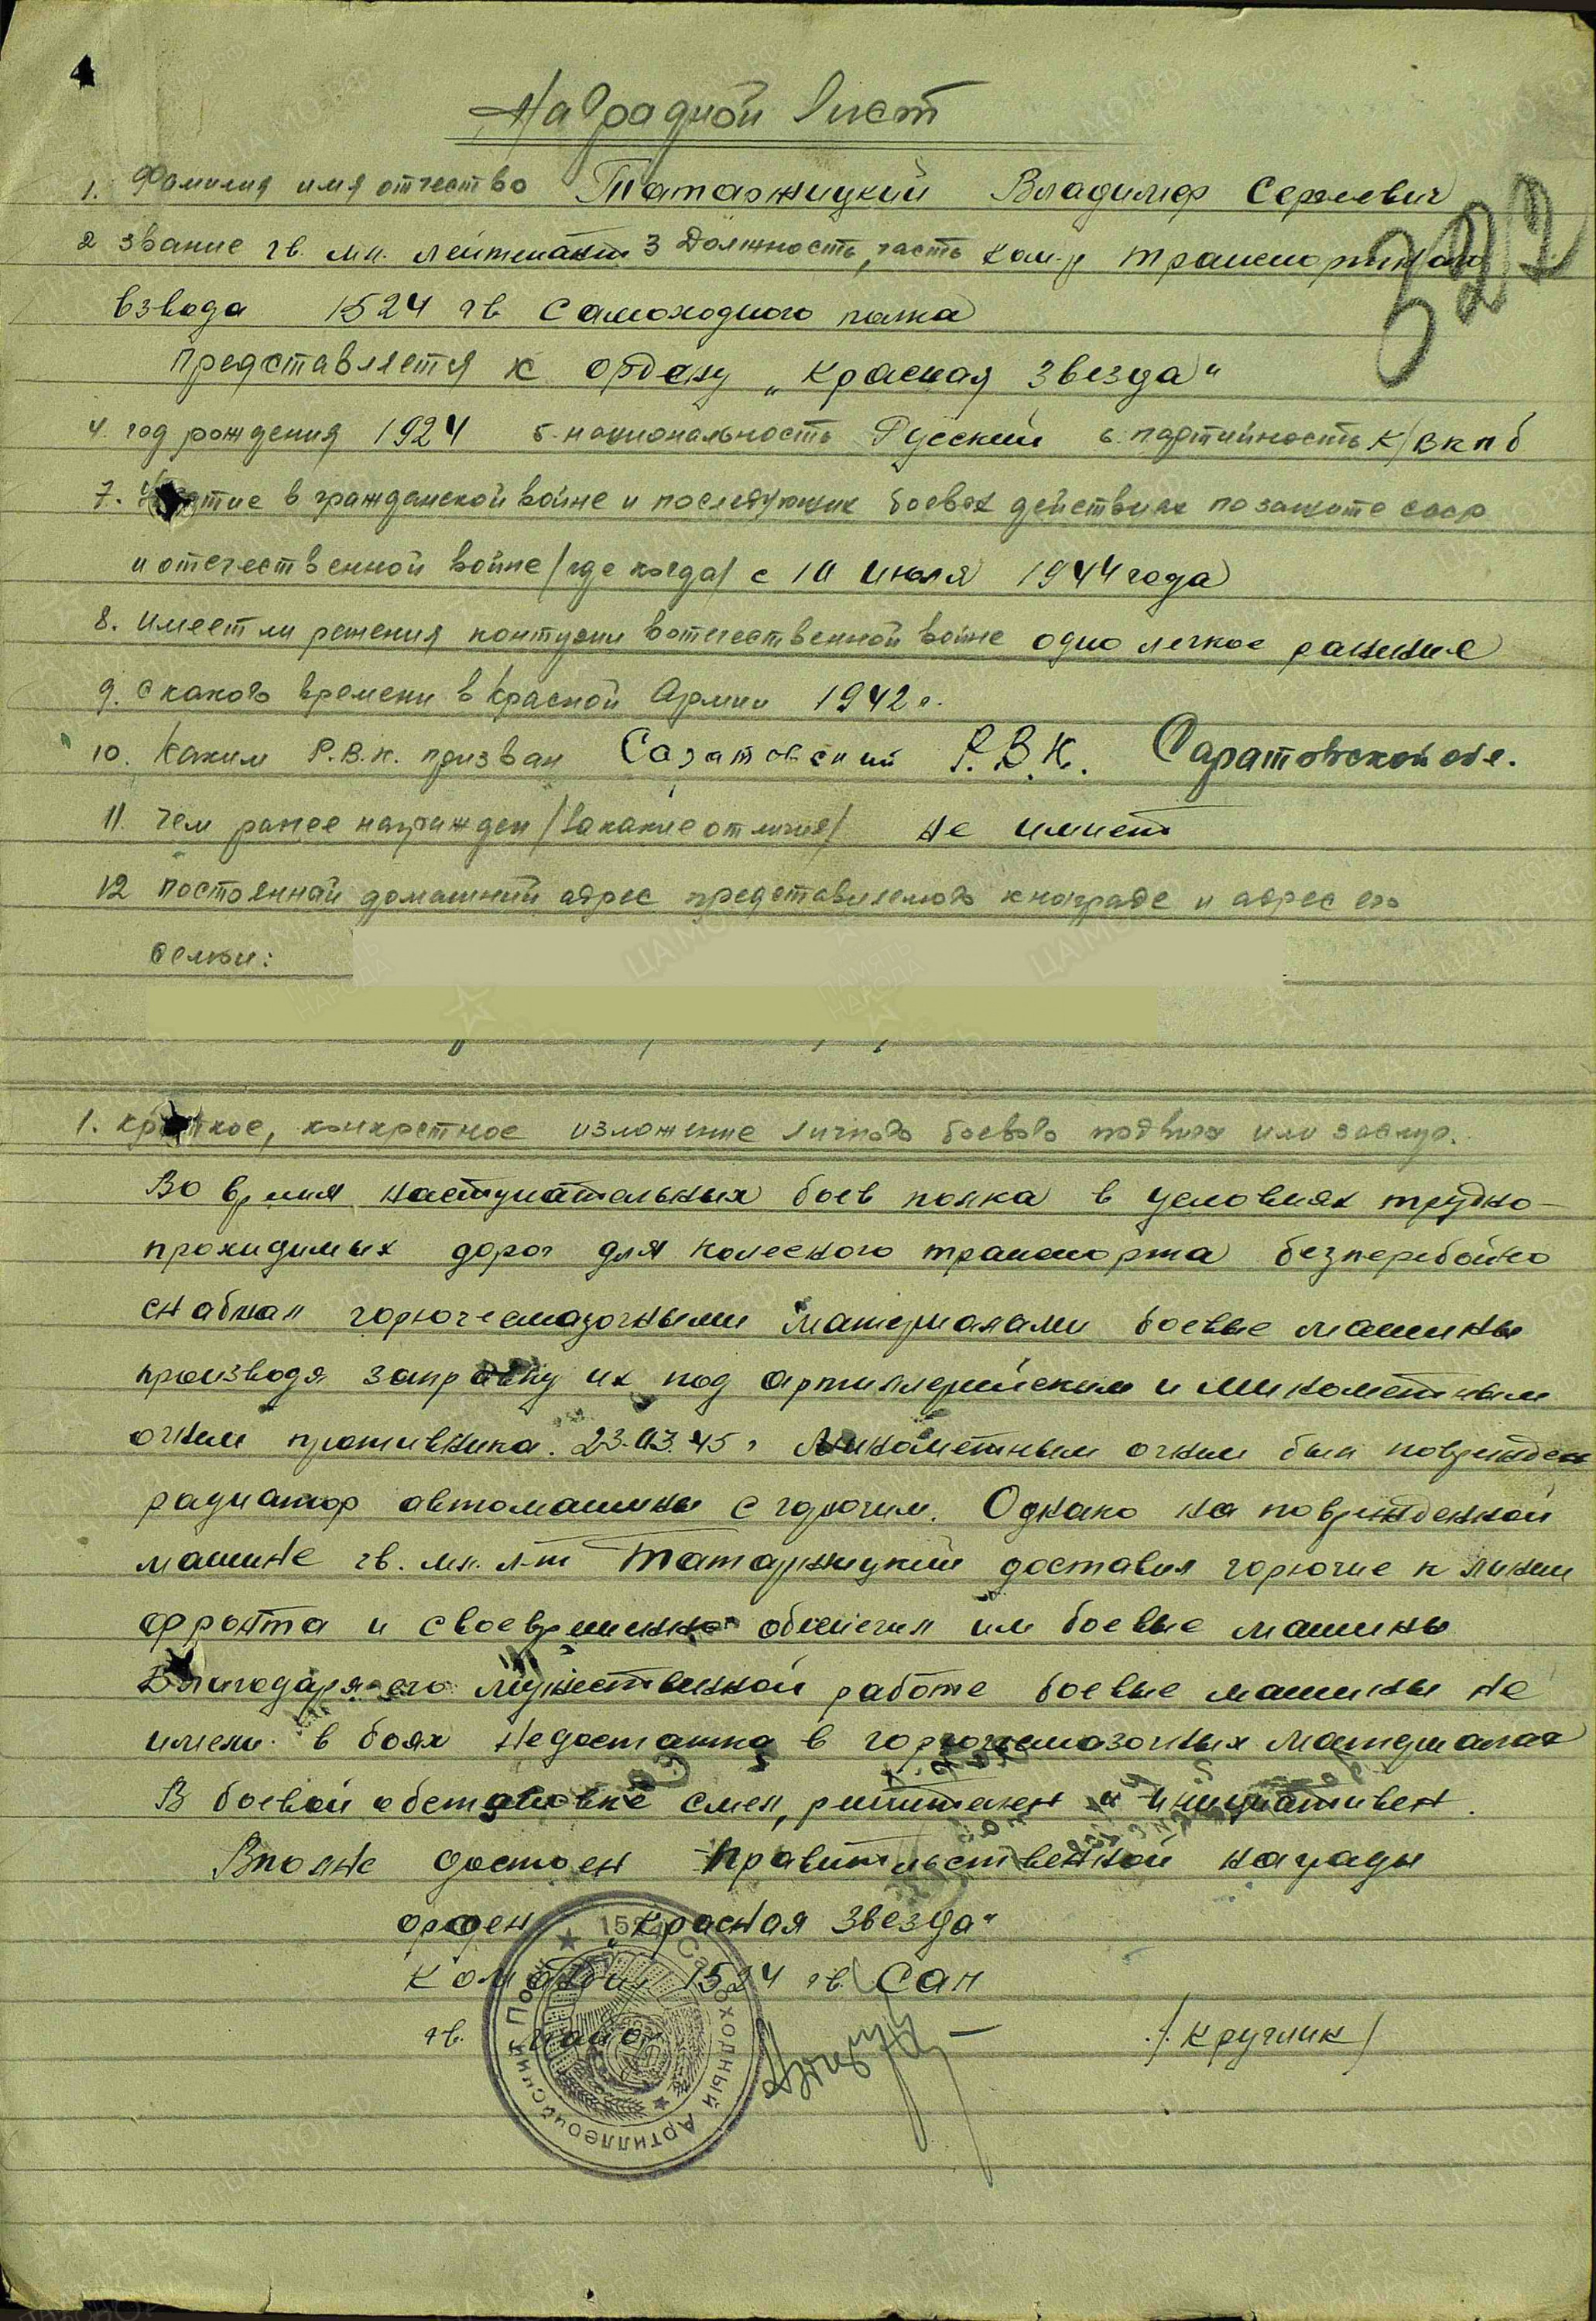 4
Наградной лист
322
1. Фамилия имя отчество Татаржицкий Владимир Сергеевич
2 звание гв. мл. лейтенант 3 Должность, часть ком-р транспортного
взвода 1524 гв самоходного полка
представляется к ордену „Красная Звезда“
4. год рождения 1924 5. национальность Русский 6. партийность К/ВКПб
7. Участие в гражданской войне и последующих боевых действиях по защите ссср
и отечественной войне /где когда/ с 10 июля 1944 года
8. имеет ли ранения контузии в отечественной войне одно легкое ранение
9. с какого времени в Красной Армии 1942 г.
10. Каким Р.В.К. призван Саратовский Р.В.К. Саратовской обл.
11. Чем ранее награжден /за какие отличия/ не имеет
12 постоянный домашний адрес представляемого к награде и адрес его
семьи:
1. краткое, конкретное изложение личного боевого подвига или заслуг.
Во время наступательных боев полка в условиях трудно-
проходимых дорог для колесного транспорта безперебойно
снабжал горючесмазочными материалами боевые машины
производя заправку их под артиллерийским и минометным
огнем противника. 23.03.45 г минометным огнем был поврежден
радиатор автомашины с горючим. Однако на поврежденной
машине гв. мл. л-т Татаржицкий доставил горючие к линии
фронта и своевременно обеспечил им боевые машины
Благодаря его мужественной работе боевые машины не
имели в боях недостатка в горючесмазочных материалах
В боевой обстановке смел, решителен и инициативен.
Вполне достоен правительственной награды
орден „Красная Звезда“
Командир 1524 гв. САП
гв. майор /Круглик/
1524 Самоходный Артиллерийский Полк